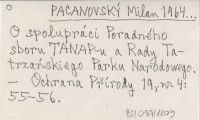 PACANOVSKÝ Milan 1964...
O spolupráci Poradného
sboru TANAP-u a Rady Ta-
trzańskiego Parku Narodowego.
- Ochrana Přírody 19, nr 4:
55-56.